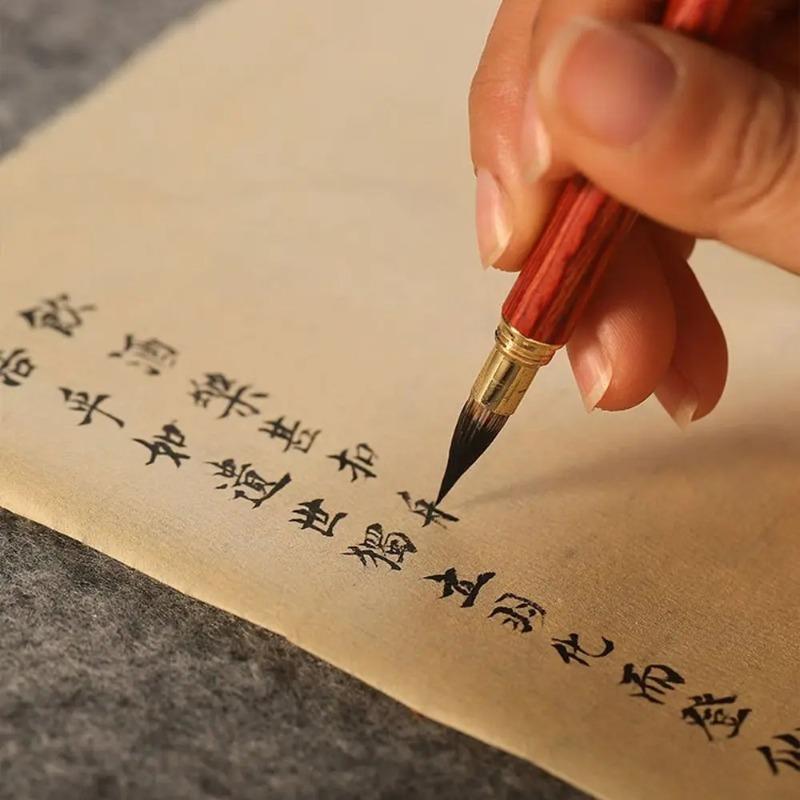 乎如遺世獨立羽化而登
飲酒樂甚扣